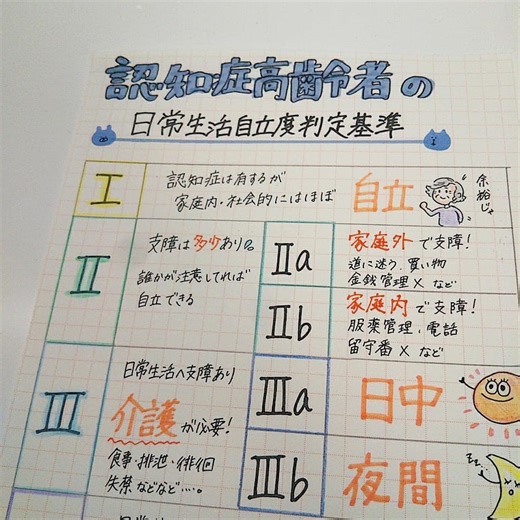 認知症高齢者の
日常生活自立度判定基準
I
認知症は有するが
家庭内・社会的にはほぼ
自立
余裕じゃ
II
支障は多少あり。
誰かが注意してれば
自立できる
IIa
家庭外で支障!
道に迷う、買い物
金銭管理×など
IIb
家庭内で支障!
服薬管理、電話
留守番×など
III
日常生活へ支障あり
介護が必要!
食事・排泄・徘徊
失禁などなど….。
IIIa
日中
IIIb
夜間